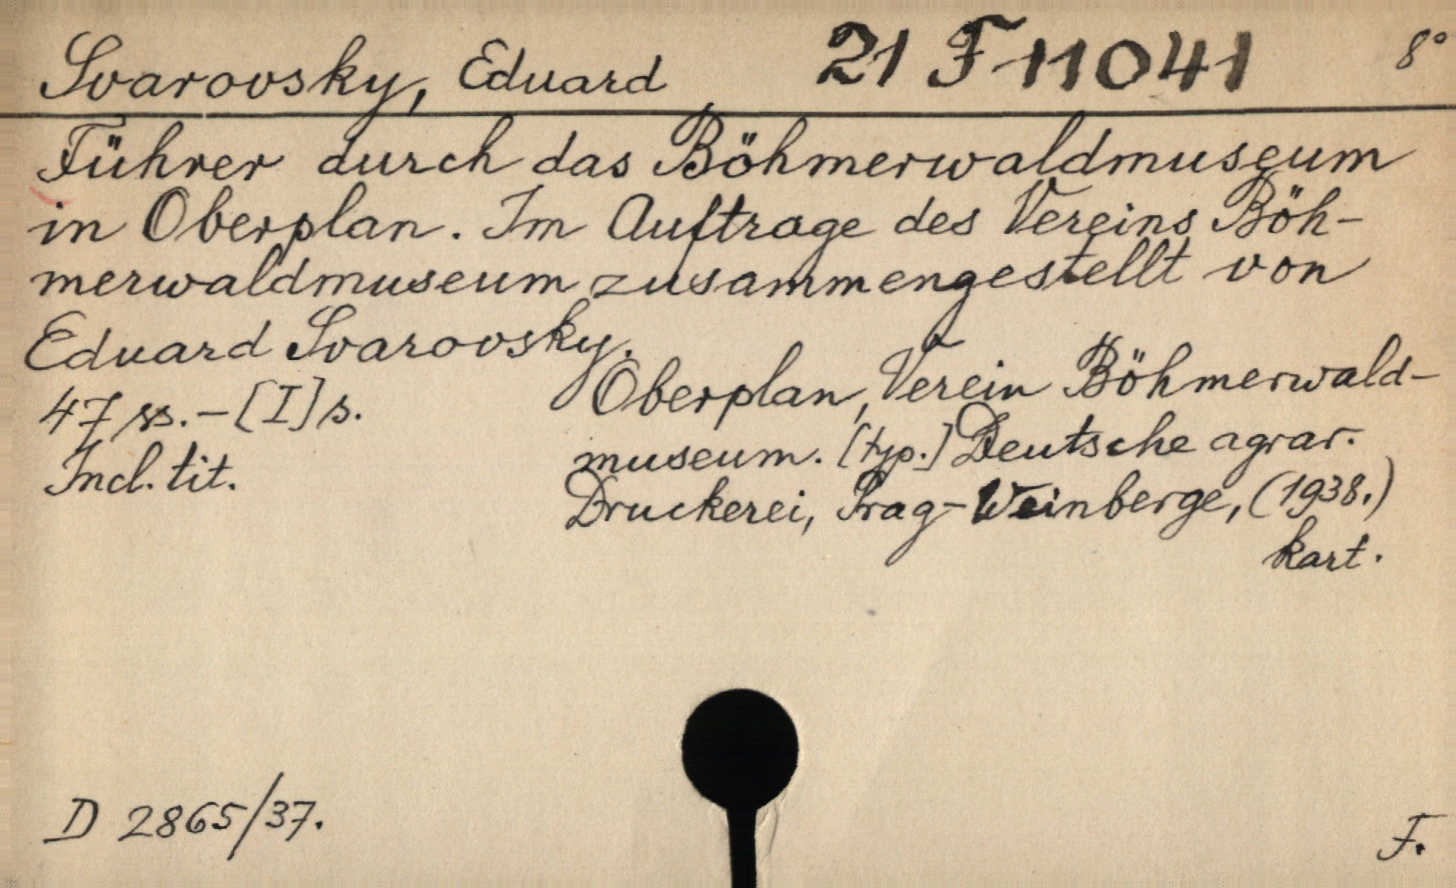 Svarovsky, Eduard 21 F 11041 8°
Führer durch das Böhmerwaldmuseum
in Oberplan. Im Auftrage des Vereins Böh-
merwaldmuseum zusammengestellt von
Eduard Svarovsky.
Oberplan, Verein Böhmerwald-
47 ss. - [I] s.
museum. [typ.] Deutsche agrar.
Incl. tit.
Druckerei, Prag-Weinberge, (1938.)
kart.
D 2865/37.
F.